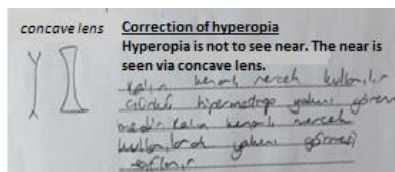 concave lens
Correction of hyperopia
Hyperopia is not to see near. The near is
seen via concave lens.
kalın kenarlı mercek kullanılır
çünkü hipermetrop yakını göre
mediğin kalın kenarlı mercek
kullanılarak yakını görmesi
sağlanır